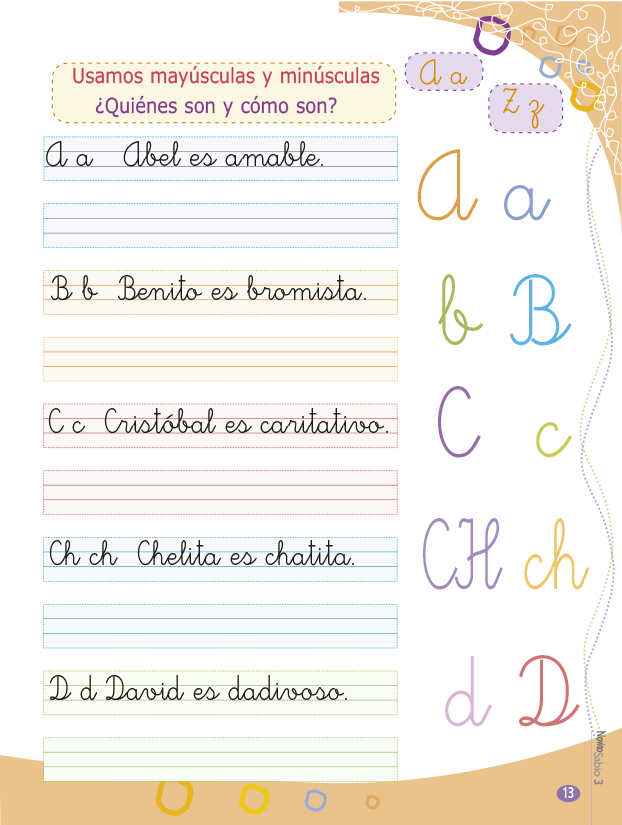 Usamos mayúsculas y minúsculas
¿Quiénes son y cómo son?
A a
Z z
A a Abel es amable.
A a
B b Benito es bromista.
b B
C c Cristóbal es caritativo.
C c
Ch ch Chelita es chatita.
CH ch
D d David es dadivoso.
d D
Sabio 3
13